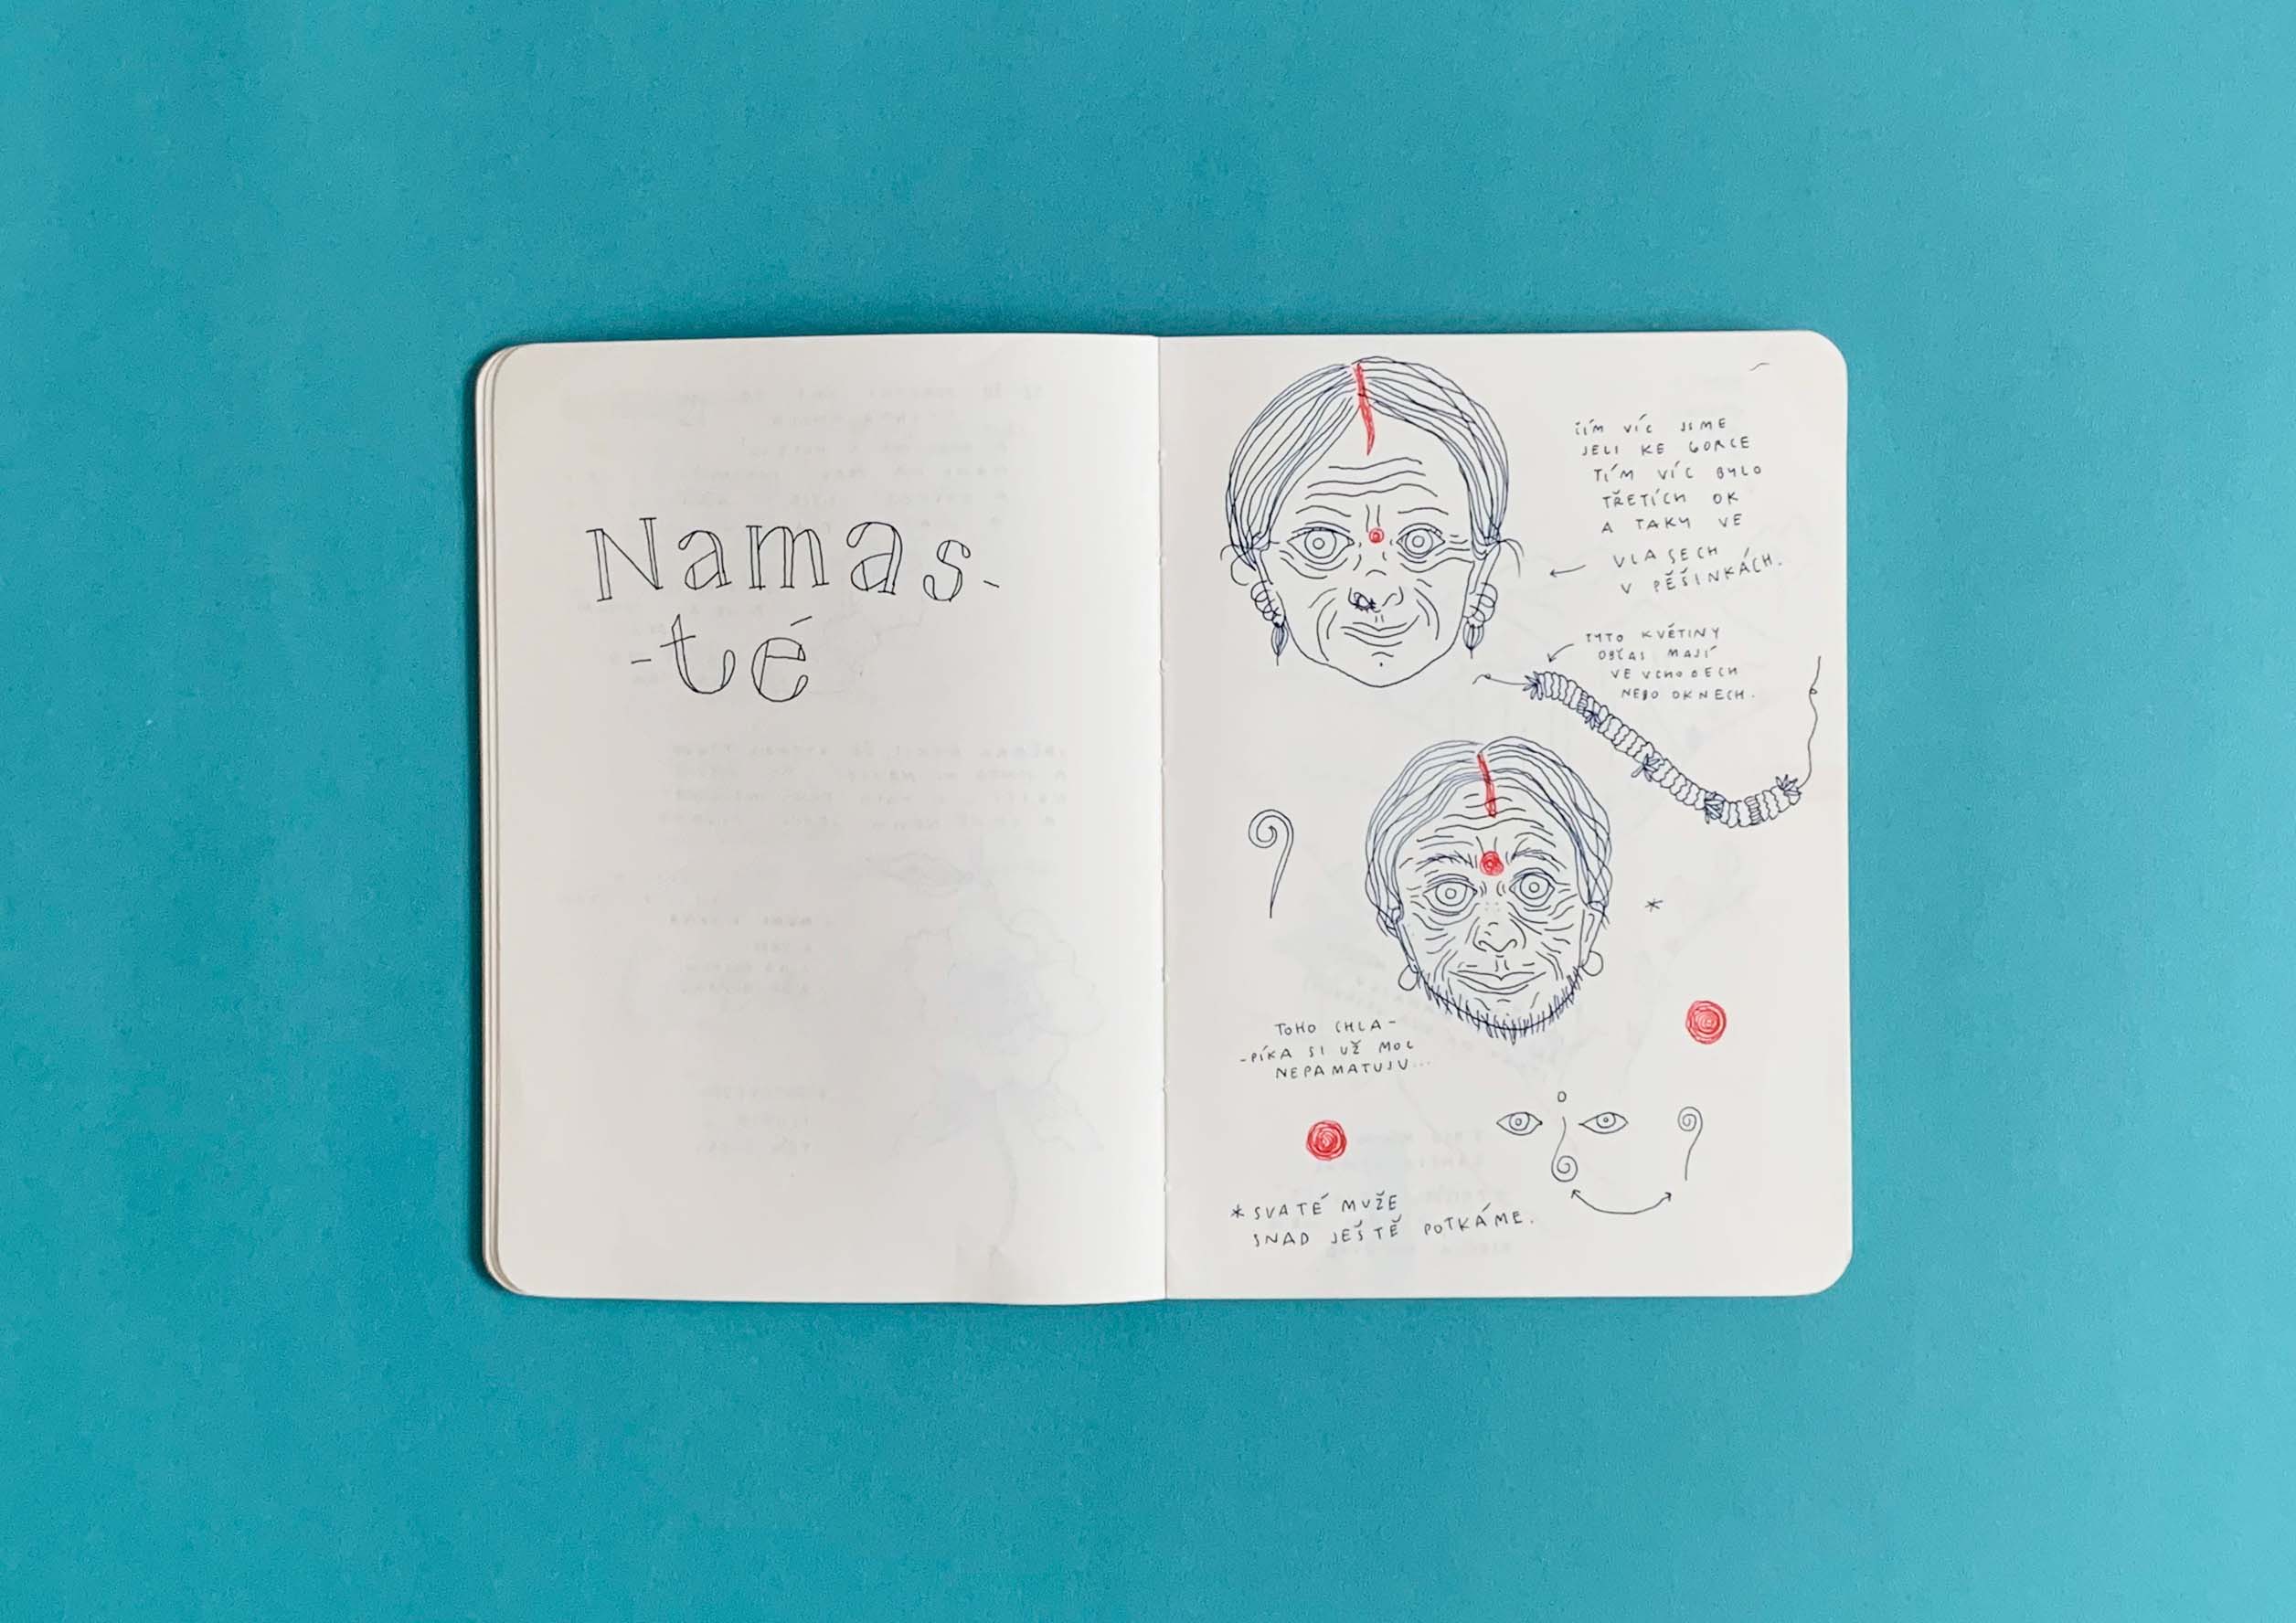 Namas-
-té
ČÍM VÍC JSME
JELI KE GORCE
TÍM VÍC BYLO
TŘETÍCH OK
A TAKY VE
VLASECH
V PĚŠINKÁCH.
TYTO KVĚTINY
OBČAS MAJÍ
VE VCHODECH
NEBO OKNECH.
*
TOHO CHLA-
-PÍKA SI UŽ MOC
NEPAMATUJU...
* SVATÉ MUŽE
SNAD JEŠTĚ POTKÁME.